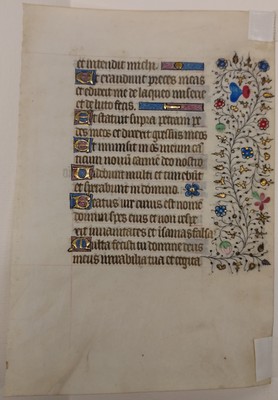 et intendit michi.
Et exaudiuit preces meas
et eduxit me de lacu miserie
et de luto fecis.
Et statuit supra petram pe
des meos et direxit gressus meos
Et inmisit in os meum can
ticum nouum carmē deo nostro
Uidebunt multi et timebūt
et sperabunt in domino.
Beatus uir cuius est nomē
domini spes eius et non respe
xit in uanitates et īsanias falsas
Multa fecisti tu domine deus
meus mirabilia tua et cogita